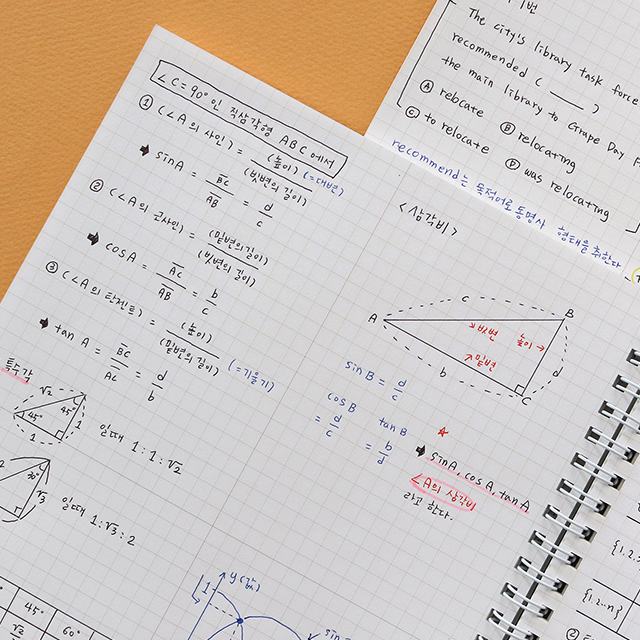 ∠C=90°인 직삼각형 ABC에서
① (∠A의 사인) = (높이)(=대변) / (빗변의 길이)
➡ sinA = BC / AB = d / c
② (∠A의 코사인) = (밑변의길이) / (빗변의 길이)
➡ cosA = AC / AB = b / c
③ (∠A의 탄젠트) = (높이) / (밑변의 길이) (=기울기)
➡ tan A = BC / AC = d / b
특수각
√2 45° 45° 1 1
일때 1:1:√2
√3
일때 1:√3:2
45° 60°
√2
<삼각비>
A B C
c b d
빗변 높이
밑변
sin B = d / c
cosB = d / c
tan B = b / d
➡ sinA, cosA, tanA
∠A의 삼각비
라고 한다.
1 y(값)
The city's library task force
recommended ( ___ )
the main library to Grape Day
Ⓐ rebcate Ⓑ relocating
Ⓒ to relocate Ⓓ was relocating
recommend는 목적어로 동명사 형태을 취한다
{1.2.
{1.2..n}
②